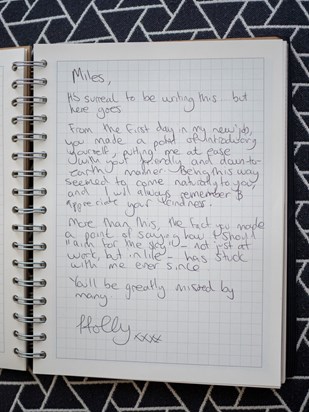 Miles,
It's surreal to be writing this... but
here goes.
From the first day in my new job,
you made a point of introducing
yourself, putting me at ease
with your friendly and down-to-
earth manner. Being this way
seemed to come naturally to you,
and I will always remember &
appreciate your kindness.
More than this, the fact you made
a point of saying how I should
"aim for the sky" - not just at
work, but in life - has stuck
with me ever since
You'll be greatly missed by
many.
Holly xxxx